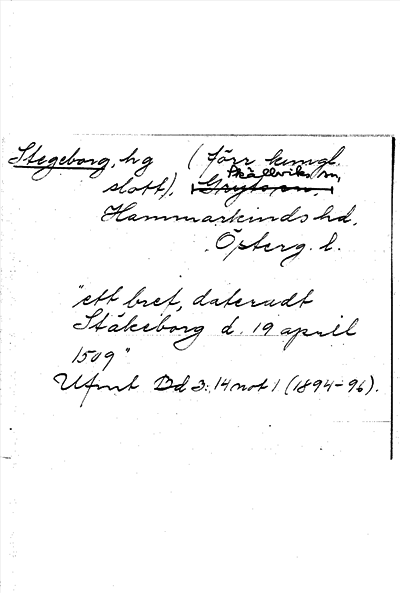 Stegeborg, hg (förr kungl.
slott), Skällviks sn,
Hammarkinds hd,
Österg. l.
"ett bref, dateradt
Stäkeborg d. 19 april
1509"
Ufmt Dd 3: 14 not 1 (1894-96).